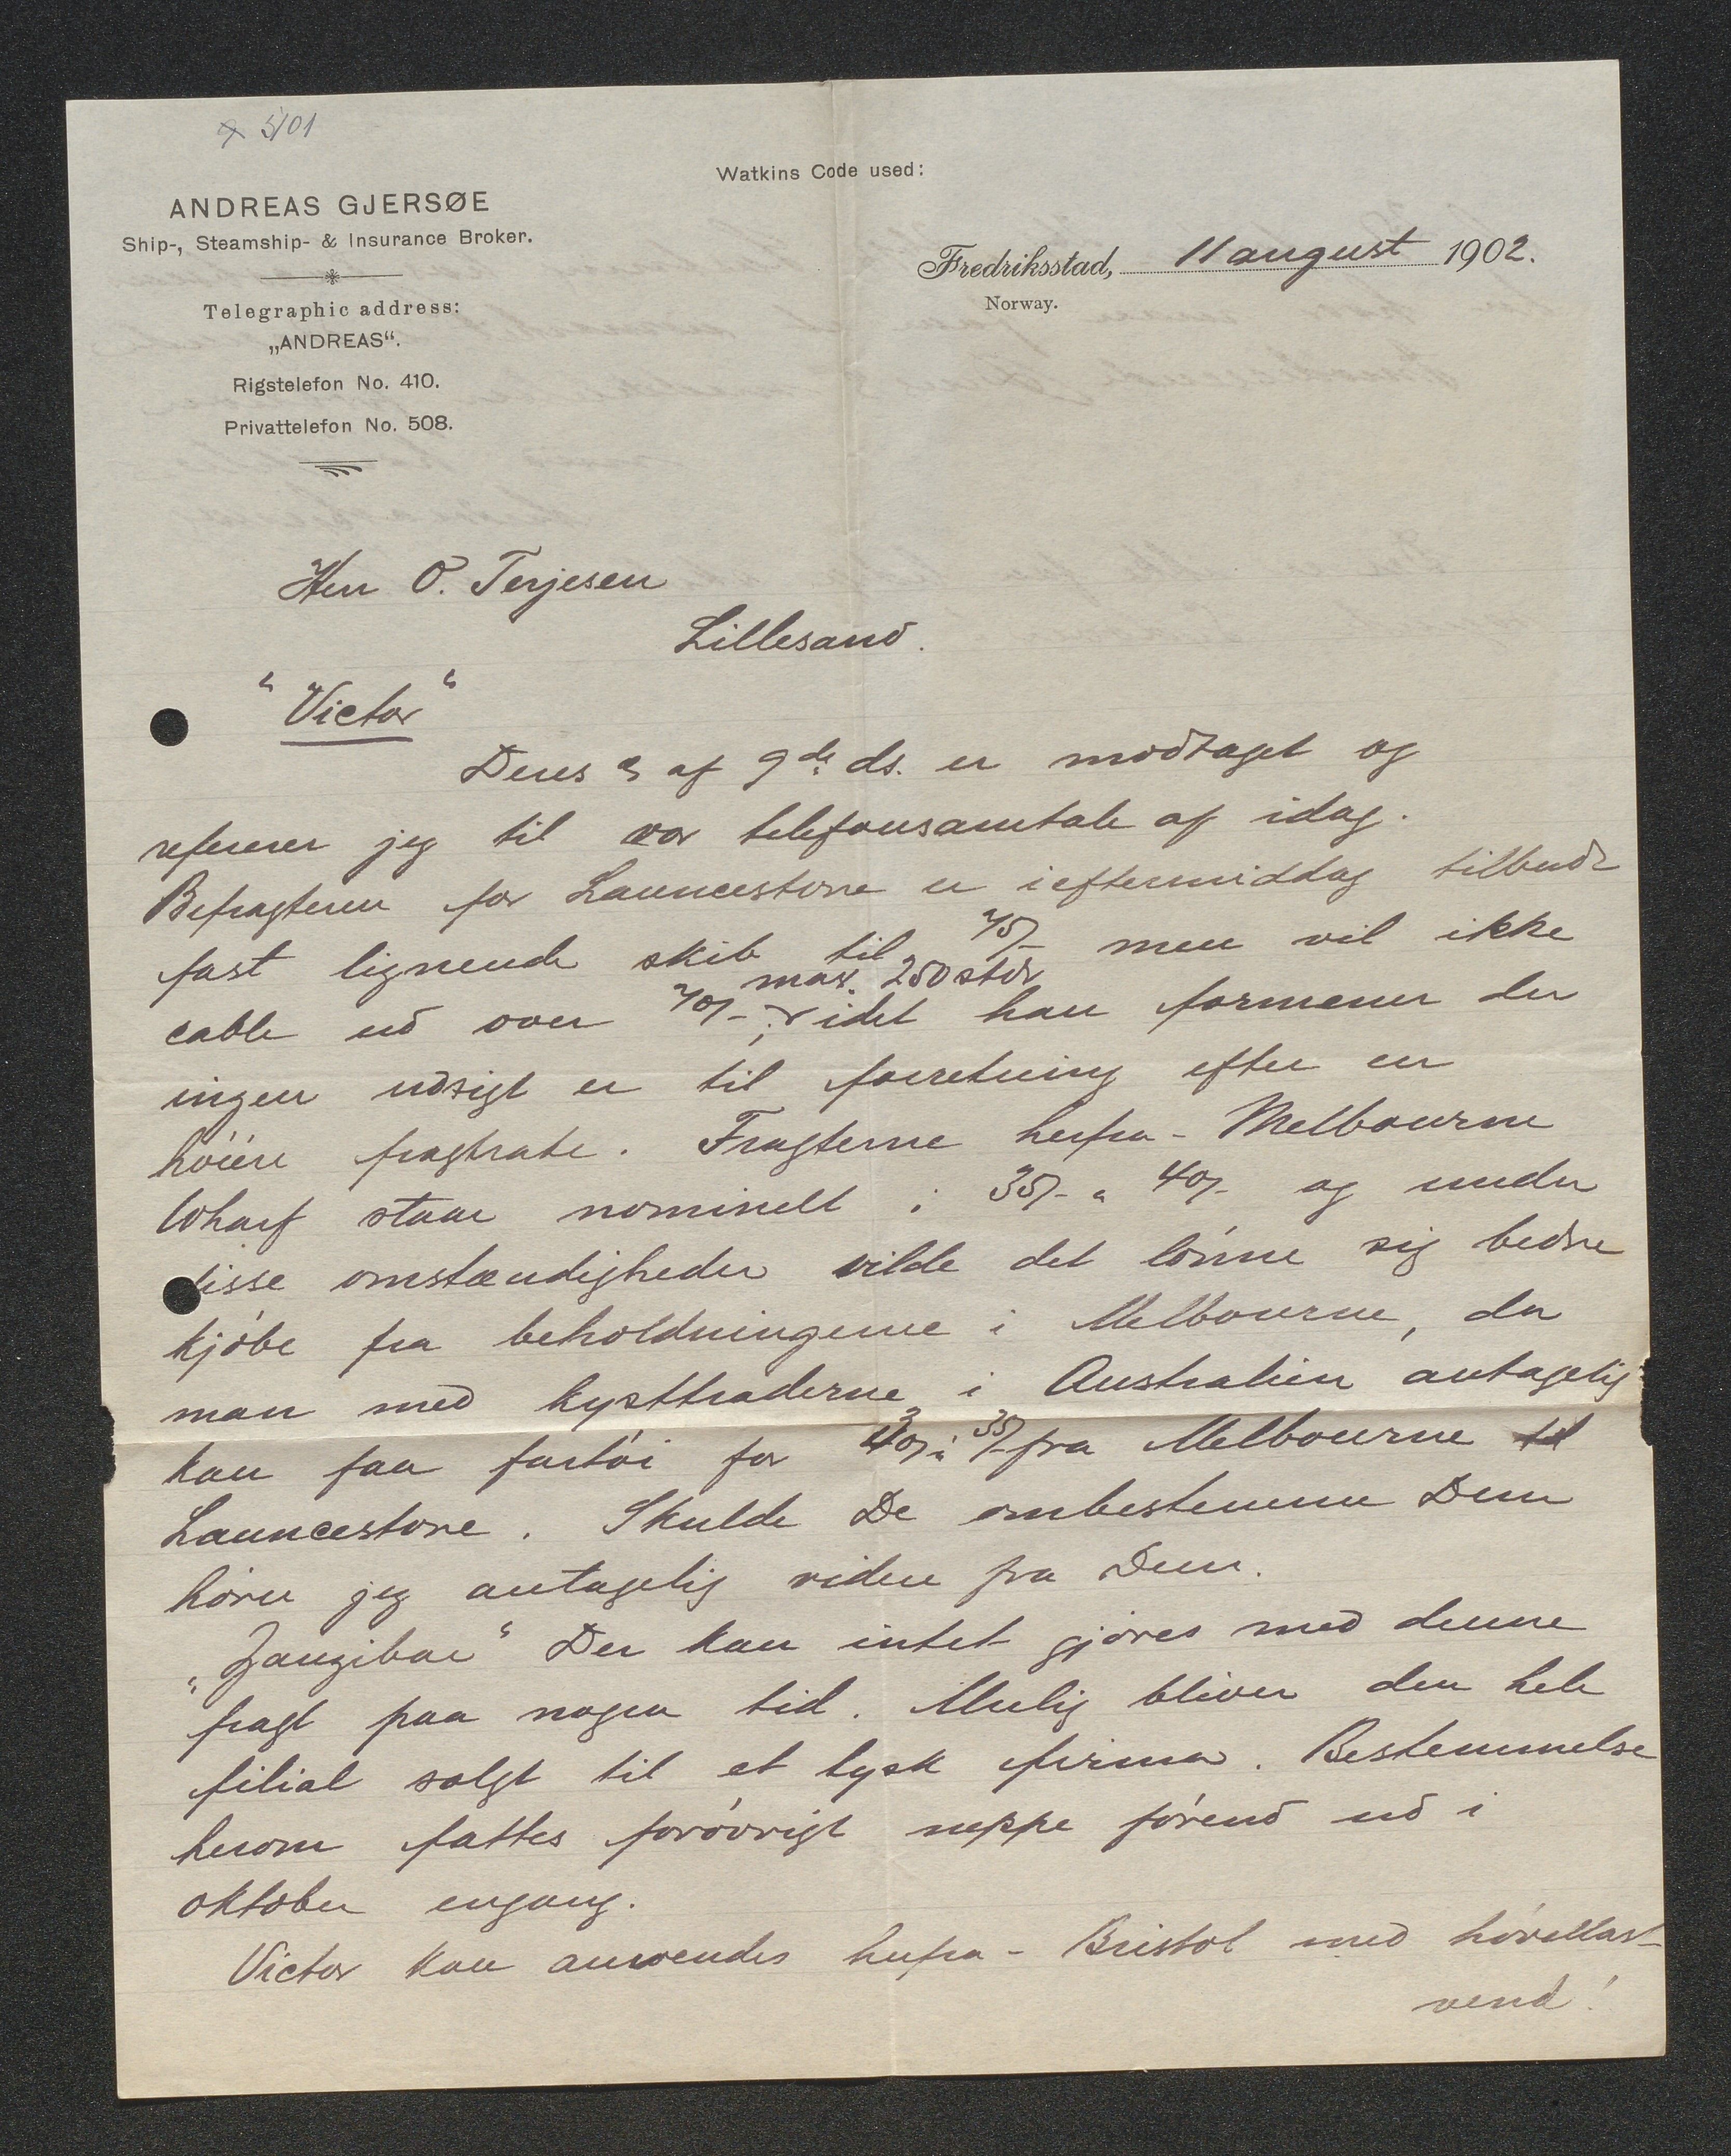 5/01
Watkins Code used:
ANDREAS GJERSØE
Ship-, Steamship- & Insurance Broker.
Telegraphic address:
„ANDREAS“.
Rigstelefon No. 410.
Privattelefon No. 508.
Fredriksstad, 11 august 1902.
Norway.
Herr O. Terjesen
Lillesand.
"Victor"
Deres af 9de ds. er modtaget og
refererer jeg til vor telefonsamtale af idag.
Befragteren for Launcestone er ieftermiddag tilbudt
fast lignende skib til 75/- men vil ikke
max. 250 stds
cable ud over 70/-; idet han formener der
ingen udsigt er til forretning efter en
høiere fragtrate. Fragterne herfra - Melbourne
Wharf staar nominelt i 35/- a 40/- og under
disse omstændigheder vilde det lønne sig bedre
kjøbe fra beholdningerne i Melbourne, da
man med kysttraderne i Australien antagelig
kan faa fartøi for 30/ a 35/- fra Melbourne til
Launcestone. Skulde De ombestemme Dem
hører jeg antagelig videre fra Dem.
„Zanzibar“ Der kan intet gjøres med denne
fragt paa nogen tid. Mulig bliver den hele
filial solgt til et tysk firma. Bestemmelse
herom fattes forøvrigt neppe førend ud i
oktober engang.
Victor kan anvendes herfra - Bristol med høvellast
vend!